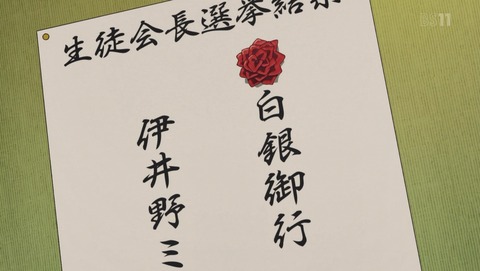 生徒会長選挙結果
白銀御行
伊井野ミ
11